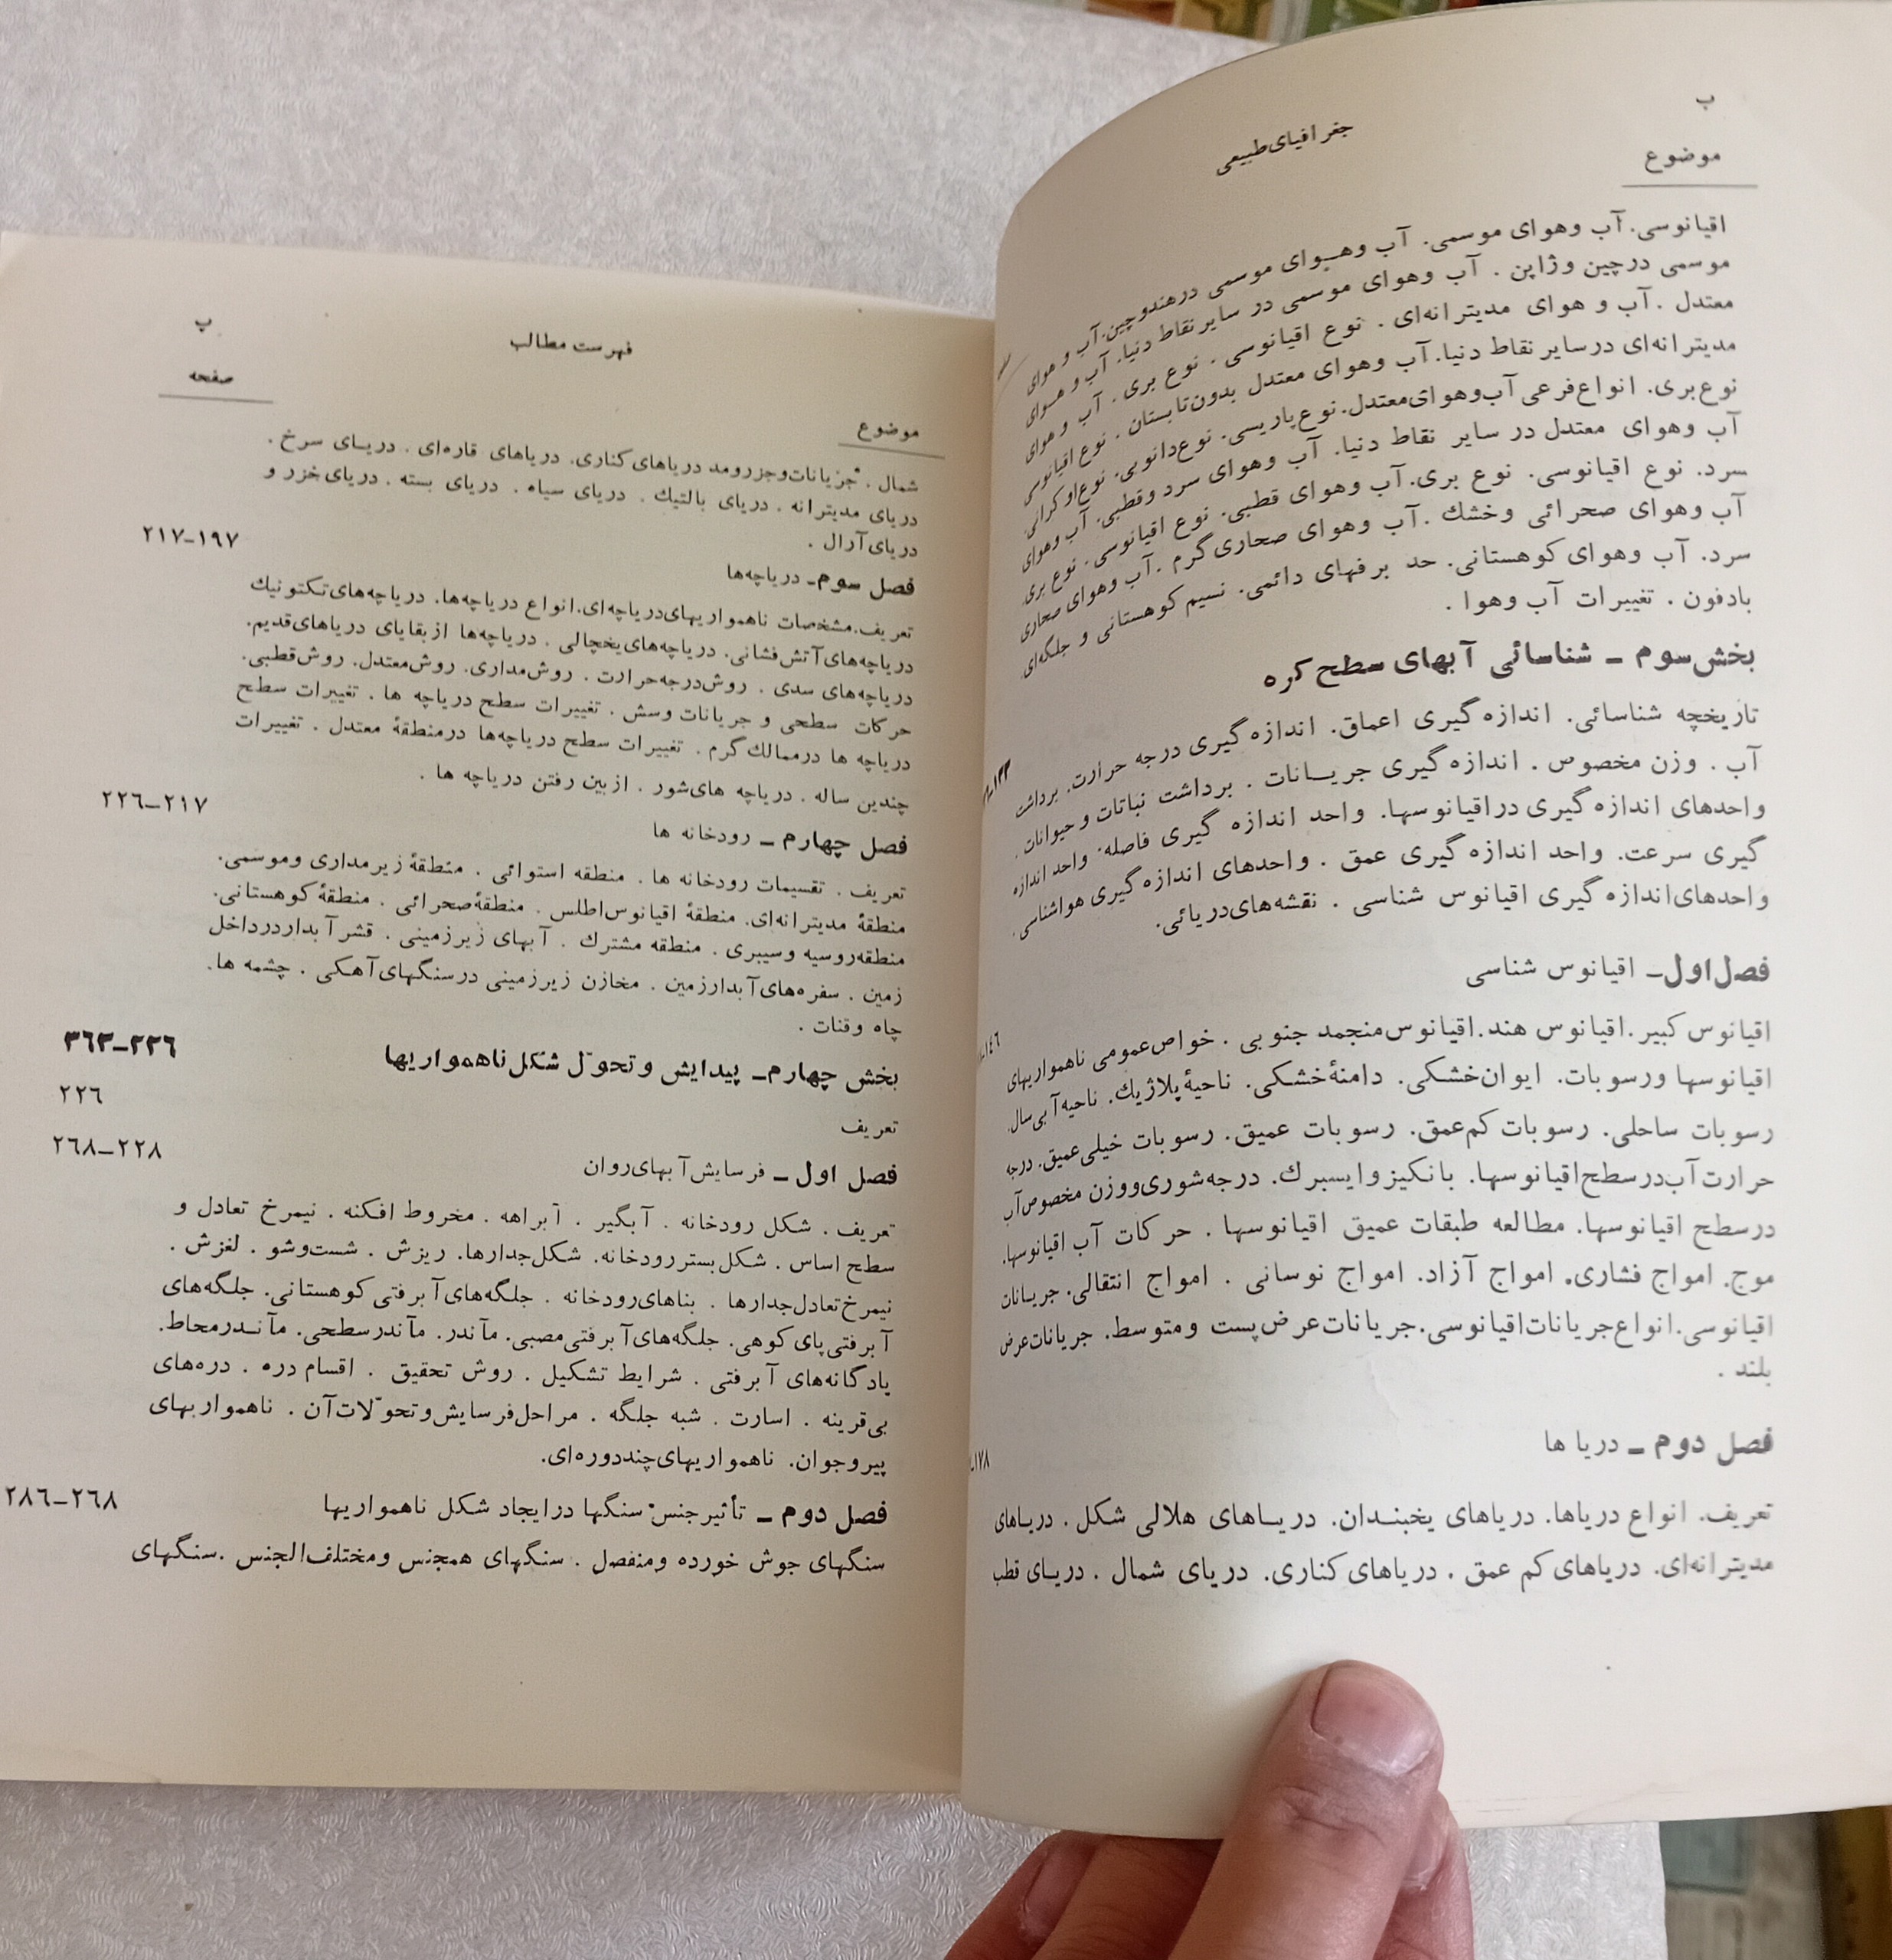 ب
جغرافیای طبیعی
موضوع
اقیانوسی. آب وهوای موسمی. آب وهوای موسمی درهندوچین. آب و هوای
موسمی درچین وژاپن . آب وهوای موسمی در سایر نقاط دنیا. آب و هوای
معتدل . آب و هوای مدیترانه‌ای . نوع اقیانوسی . نوع بری . آب وهوای
مدیترانه‌ای درسایر نقاط دنیا. آب وهوای معتدل بدون‌تابستان . نوع اقیانوسی
نوع‌بری. انواع‌فرعی آب‌وهوای‌معتدل. نوع‌پاریسی. نوع‌دانوبی. نوع‌اوکرانی.
آب وهوای معتدل در سایر نقاط دنیا. آب وهوای سرد وقطبی. آب وهوای
سرد. نوع اقیانوسی. نوع بری. آب وهوای قطبی. نوع اقیانوسی. نوع بری.
آب وهوای صحرائی وخشك . آب وهوای صحاری‌گرم . آب وهوای صحاری
سرد. آب وهوای کوهستانی. حد برفهای دائمی. نسیم کوهستانی و جلگه‌ای.
بادفون . تغییرات آب وهوا .
بخش‌سوم – شناسائی آبهای سطح کره
تاریخچه شناسائی. اندازه‌گیری اعماق. اندازه‌گیری درجه حرارت. برداشت
آب . وزن مخصوص . اندازه‌گیری جریـانات . برداشت نباتات وحیوانات .
واحدهای اندازه‌گیری دراقیانوسها. واحد اندازه گیری فاصله. واحد اندازه
گیری سرعت. واحد اندازه‌گیری عمق . واحدهای اندازه‌گیری هواشناسی.
واحدهای‌اندازه‌گیری اقیانوس شناسی . نقشه‌های‌دریائی.
فصل‌اول– اقیانوس شناسی
١٤٦
اقیانوس کبیر. اقیانوس هند. اقیانوس‌منجمد جنوبی . خواص‌عمومی ناهمواریهای
اقیانوسها ورسوبات. ایوان‌خشکی. دامنهٔ خشکی. ناحیهٔ پلاژیك. ناحیه آبی‌سال.
رسوبات ساحلی. رسوبات کم‌عمق. رسوبات عمیق. رسوبات خیلی‌عمیق. درجه
حرارت‌آب‌درسطح‌اقیانوسها. بانکیز وایسبرك. درجه‌شوری‌ووزن مخصوص‌آب
درسطح اقیانوسها. مطالعه طبقات عمیق اقیانوسها . حرکات آب اقیانوسها.
موج. امواج فشاری. امواج آزاد. امواج نوسانی . امواج انتقالی. جریـانات
اقیانوسی. انواع‌جریانات‌اقیانوسی. جریانات‌عرض‌پست ومتوسط. جریانات‌عرض
بلند .
فصل دوم – دریا ها
١٧٨
تعریف. انواع دریاها. دریاهای یخبنـدان. دریـاهای هلالی شکل . دریـاهای
مدیترانه‌ای. دریاهای کم عمق . دریاهای‌کناری. دریای شمال . دریـای قطب
پ
فهرست مطالب
صفحه
موضوع
شمال . جریانات‌وجزرومد دریاهای‌کناری. دریاهای قاره‌ای . دریـای سرخ .
دریای مدیترانه . دریای بالتیك . دریای سیاه . دریای بسته . دریای‌خزر و
دریای‌آرال . ١٩٧–٢١٧
فصل سوم– دریاچه‌ها
تعریف. مشخصات ناهمواریهای‌دریاچه‌ای. انواع دریاچه‌ها. دریاچه‌های‌تکتونیك
دریاچه‌های‌آتش‌فشانی. دریاچه‌های‌یخچالی . دریاچه‌ها ازبقایای دریاهای‌قدیم.
دریاچه‌های سدی . روش‌درجه‌حرارت . روش‌مداری. روش‌معتدل. روش‌قطبی.
حرکات سطحی و جریانات وسش . تغییرات سطح دریاچه ها . تغییرات سطح
دریاچه ها درممالك‌گرم . تغییرات سطح دریاچه‌ها درمنطقهٔ معتدل . تغییرات
چندین ساله . دریاچه های‌شور . ازبین رفتن دریاچه ها . ٢١٧–٢٢٦
فصل چهارم – رودخانه ها
تعریف . تقسیمات رودخانه ها . منطقه استوائی . منطقهٔ زیرمداری وموسمی.
منطقهٔ مدیترانه‌ای. منطقهٔ اقیانوس‌اطلس . منطقهٔ‌صحرائی . منطقهٔ‌کوهستانی.
منطقه‌روسیه وسیبری . منطقه مشترك . آبهای زیرزمینی . قشرآبداردرداخل
زمین . سفره‌های‌آبدارزمین . مخازن زیرزمینی درسنگهای‌آهکی . چشمه ها.
چاه وقنات .
بخش چهارم– پیدایش وتحوّل شکل‌ناهمواریها ٢٢٦–٣٦٣
تعریف ٢٢٦
فصل اول – فرسایش‌آبهای‌روان ٢٢٨–٢٦٨
تعریف . شکل رودخانه . آبگیر . آبراهه . مخروط افکنه . نیمرخ تعادل و
سطح اساس . شکل‌بستررودخانه. شکل‌جدارها. ریزش . شست‌وشو . لغزش .
نیمرخ‌تعادل‌جدارها . بناهای‌رودخانه . جلگه‌های‌آبرفتی‌کوهستانی. جلگه‌های
آبرفتی‌پای کوهی. جلگه‌های‌آبرفتی‌مصبی. مآندر. مآندرسطحی. مآنـدرمحاط.
یادگانه‌های آبرفتی . شرایط تشکیل . روش تحقیق . اقسام دره . دره‌های
بی‌قرینه . اسارت . شبه جلگه . مراحل‌فرسایش‌وتحوّلات‌آن . ناهمواریهای
پیروجوان. ناهمواریهای‌چنددوره‌ای.
فصل دوم – تأثیرجنس سنگها درایجاد شکل ناهمواریها ٢٦٨–٢٨٦
سنگهای جوش خورده ومنفصل . سنگهای همجنس ومختلف‌الجنس . سنگهای